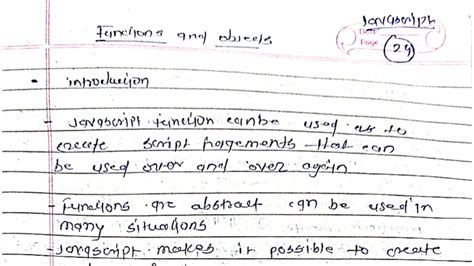 Javascript
Date
Page 24
Functions and objects
• introduction
- Javascript function can be used as to
create script fragements that can
be used over and over again
- Functions are abstract can be used in
many situations
- Javascript makes it possible to create